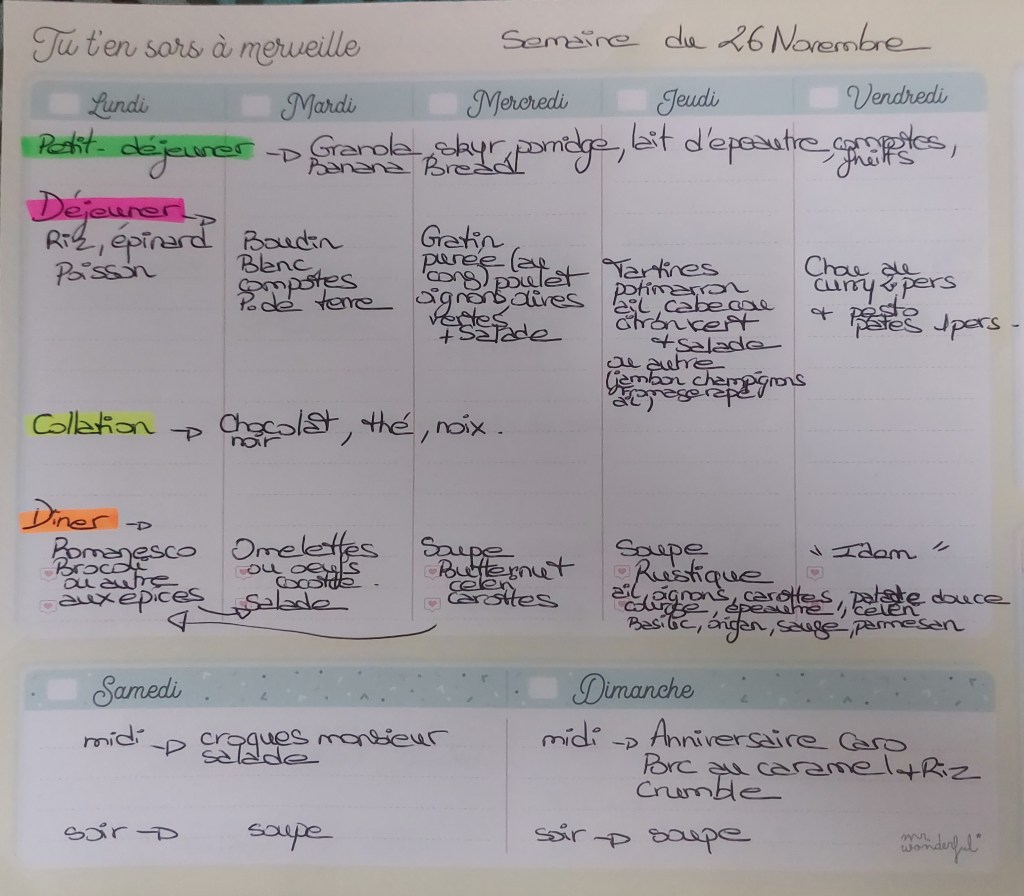 Tu t'en sors à merveille
Semaine du 26 Novembre
Lundi Mardi Mercredi Jeudi Vendredi
Petit-déjeuner → Granola, skyr, porridge, lait d'épeautre, compotes, fruits
Banana Bread
Déjeuner →
Riz, épinard
Poisson
Boudin
Blanc
compotes
P. de terre
Gratin
purée (au
cong) poulet
oignons, olives
vertes
+ Salade
Tartines
potimarron
ail, cabecou
citron vert
+ salade
ou autre
(jambon champignons
fromage rapé
ail)
Chou au
curry 2 pers
+ pesto
pâtes 1 pers.
Collation → Chocolat, thé, noix.
noir
Dîner →
Romanesco
Brocoli
ou autre
aux épices
Omelettes
ou oeufs
cocotte.
Salade
Soupe
Butternut
céleri
carottes
Soupe
Rustique
ail, oignons, carottes, patate douce
courge, épeautre, céleri
Basilic, origan, sauge, parmesan
" Idem "
Samedi
midi → croques monsieur
salade
soir → soupe
Dimanche
midi → Anniversaire Caro
Porc au caramel + Riz
Crumble
soir → soupe
mr.
wonderful*